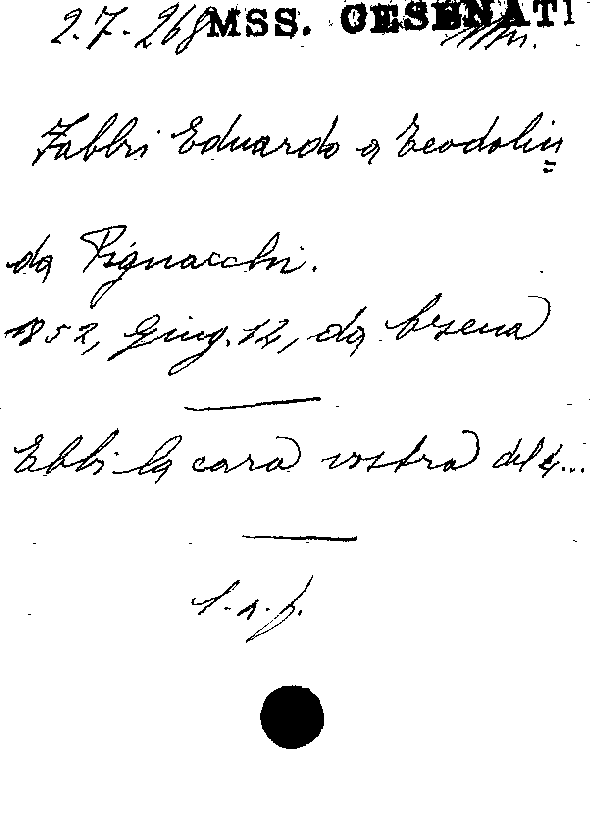 2.7.268 MSS. CESENATI
Fabbri Eduardo a Teodolin
da Pignacchi.
1852, Giug. 12, da Cesena
Ebbi la cara vostra del 4...
l. a. f.